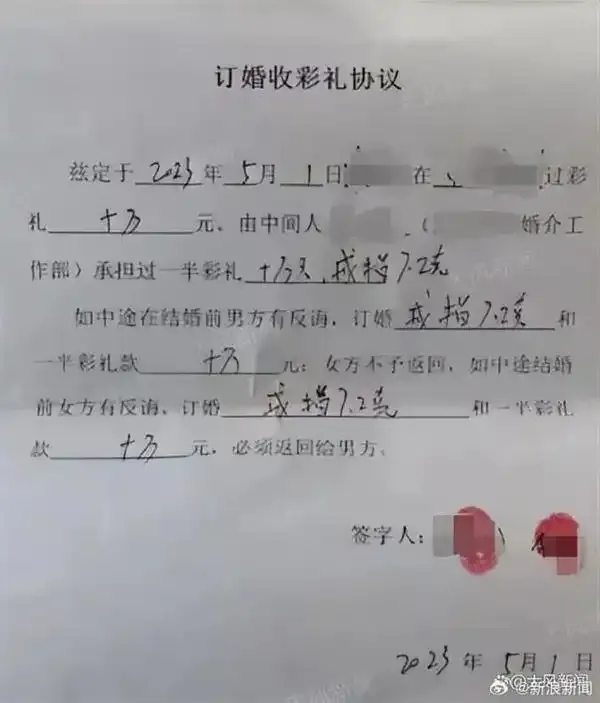 订婚收彩礼协议
兹定于 2023 年 5月 1 日 在 过彩
礼 十万 元、由中间人 （ 婚介工
作部）承担过一半彩礼 十万元,戒指7.2克
如中途在结婚前男方有反诲，订婚 戒指7.2克 和
一半彩礼款 十万 元；女方不予返回，如中途结婚
前女方有反诲、订婚 戒指7.2克 和一半彩礼
款 十万 元，必须返回给男方。
签字人：
2023 年 5月 1 日
@大风新闻
@新浪新闻